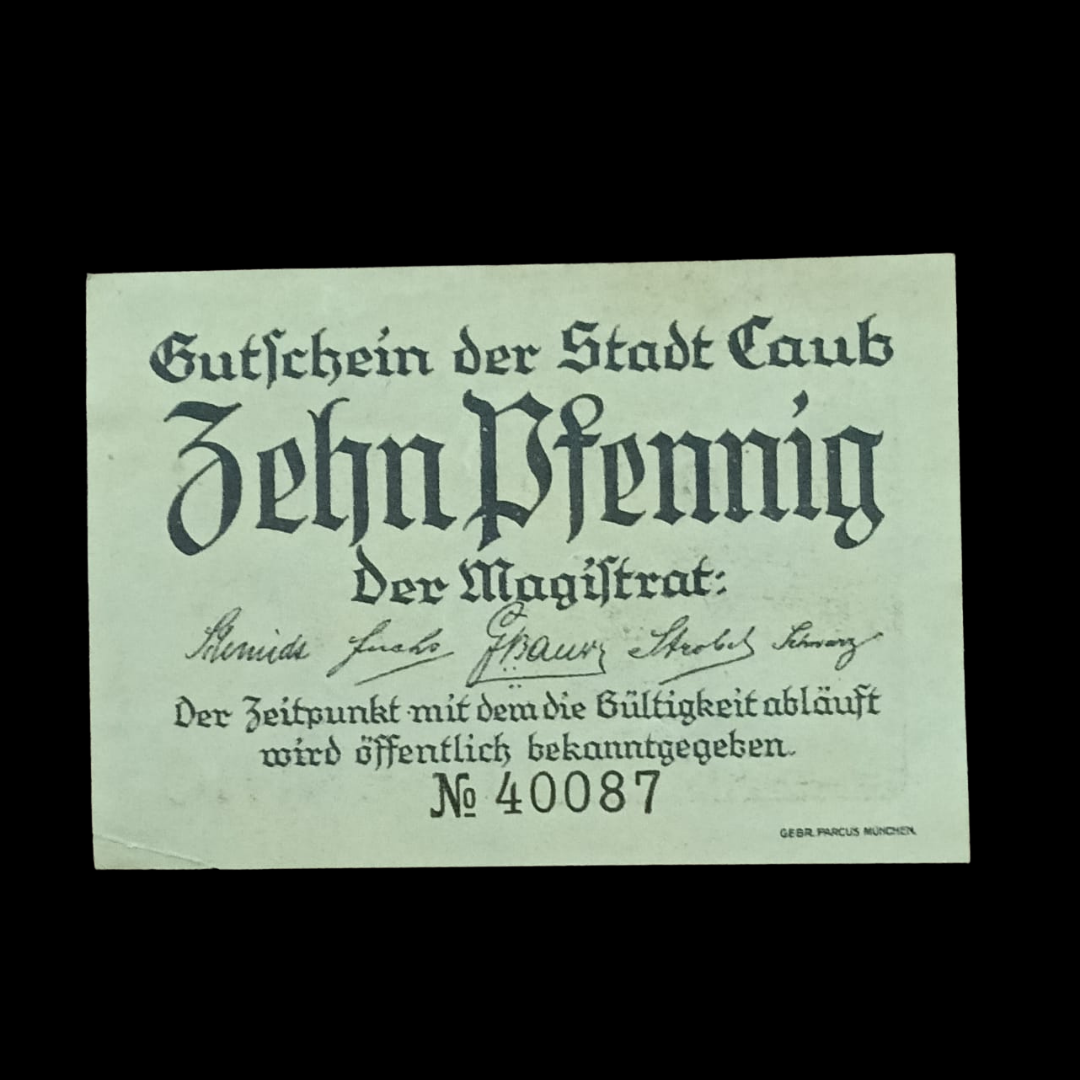 Gutſchein der Stadt Caub
Zehn Pfennig
Der Magiſtrat:
Fuchs Strobel Schwarz
Der Zeitpunkt mit dem die Gültigkeit abläuft
wird öffentlich bekanntgegeben.
№ 40087
GEBR. PARCUS MÜNCHEN.